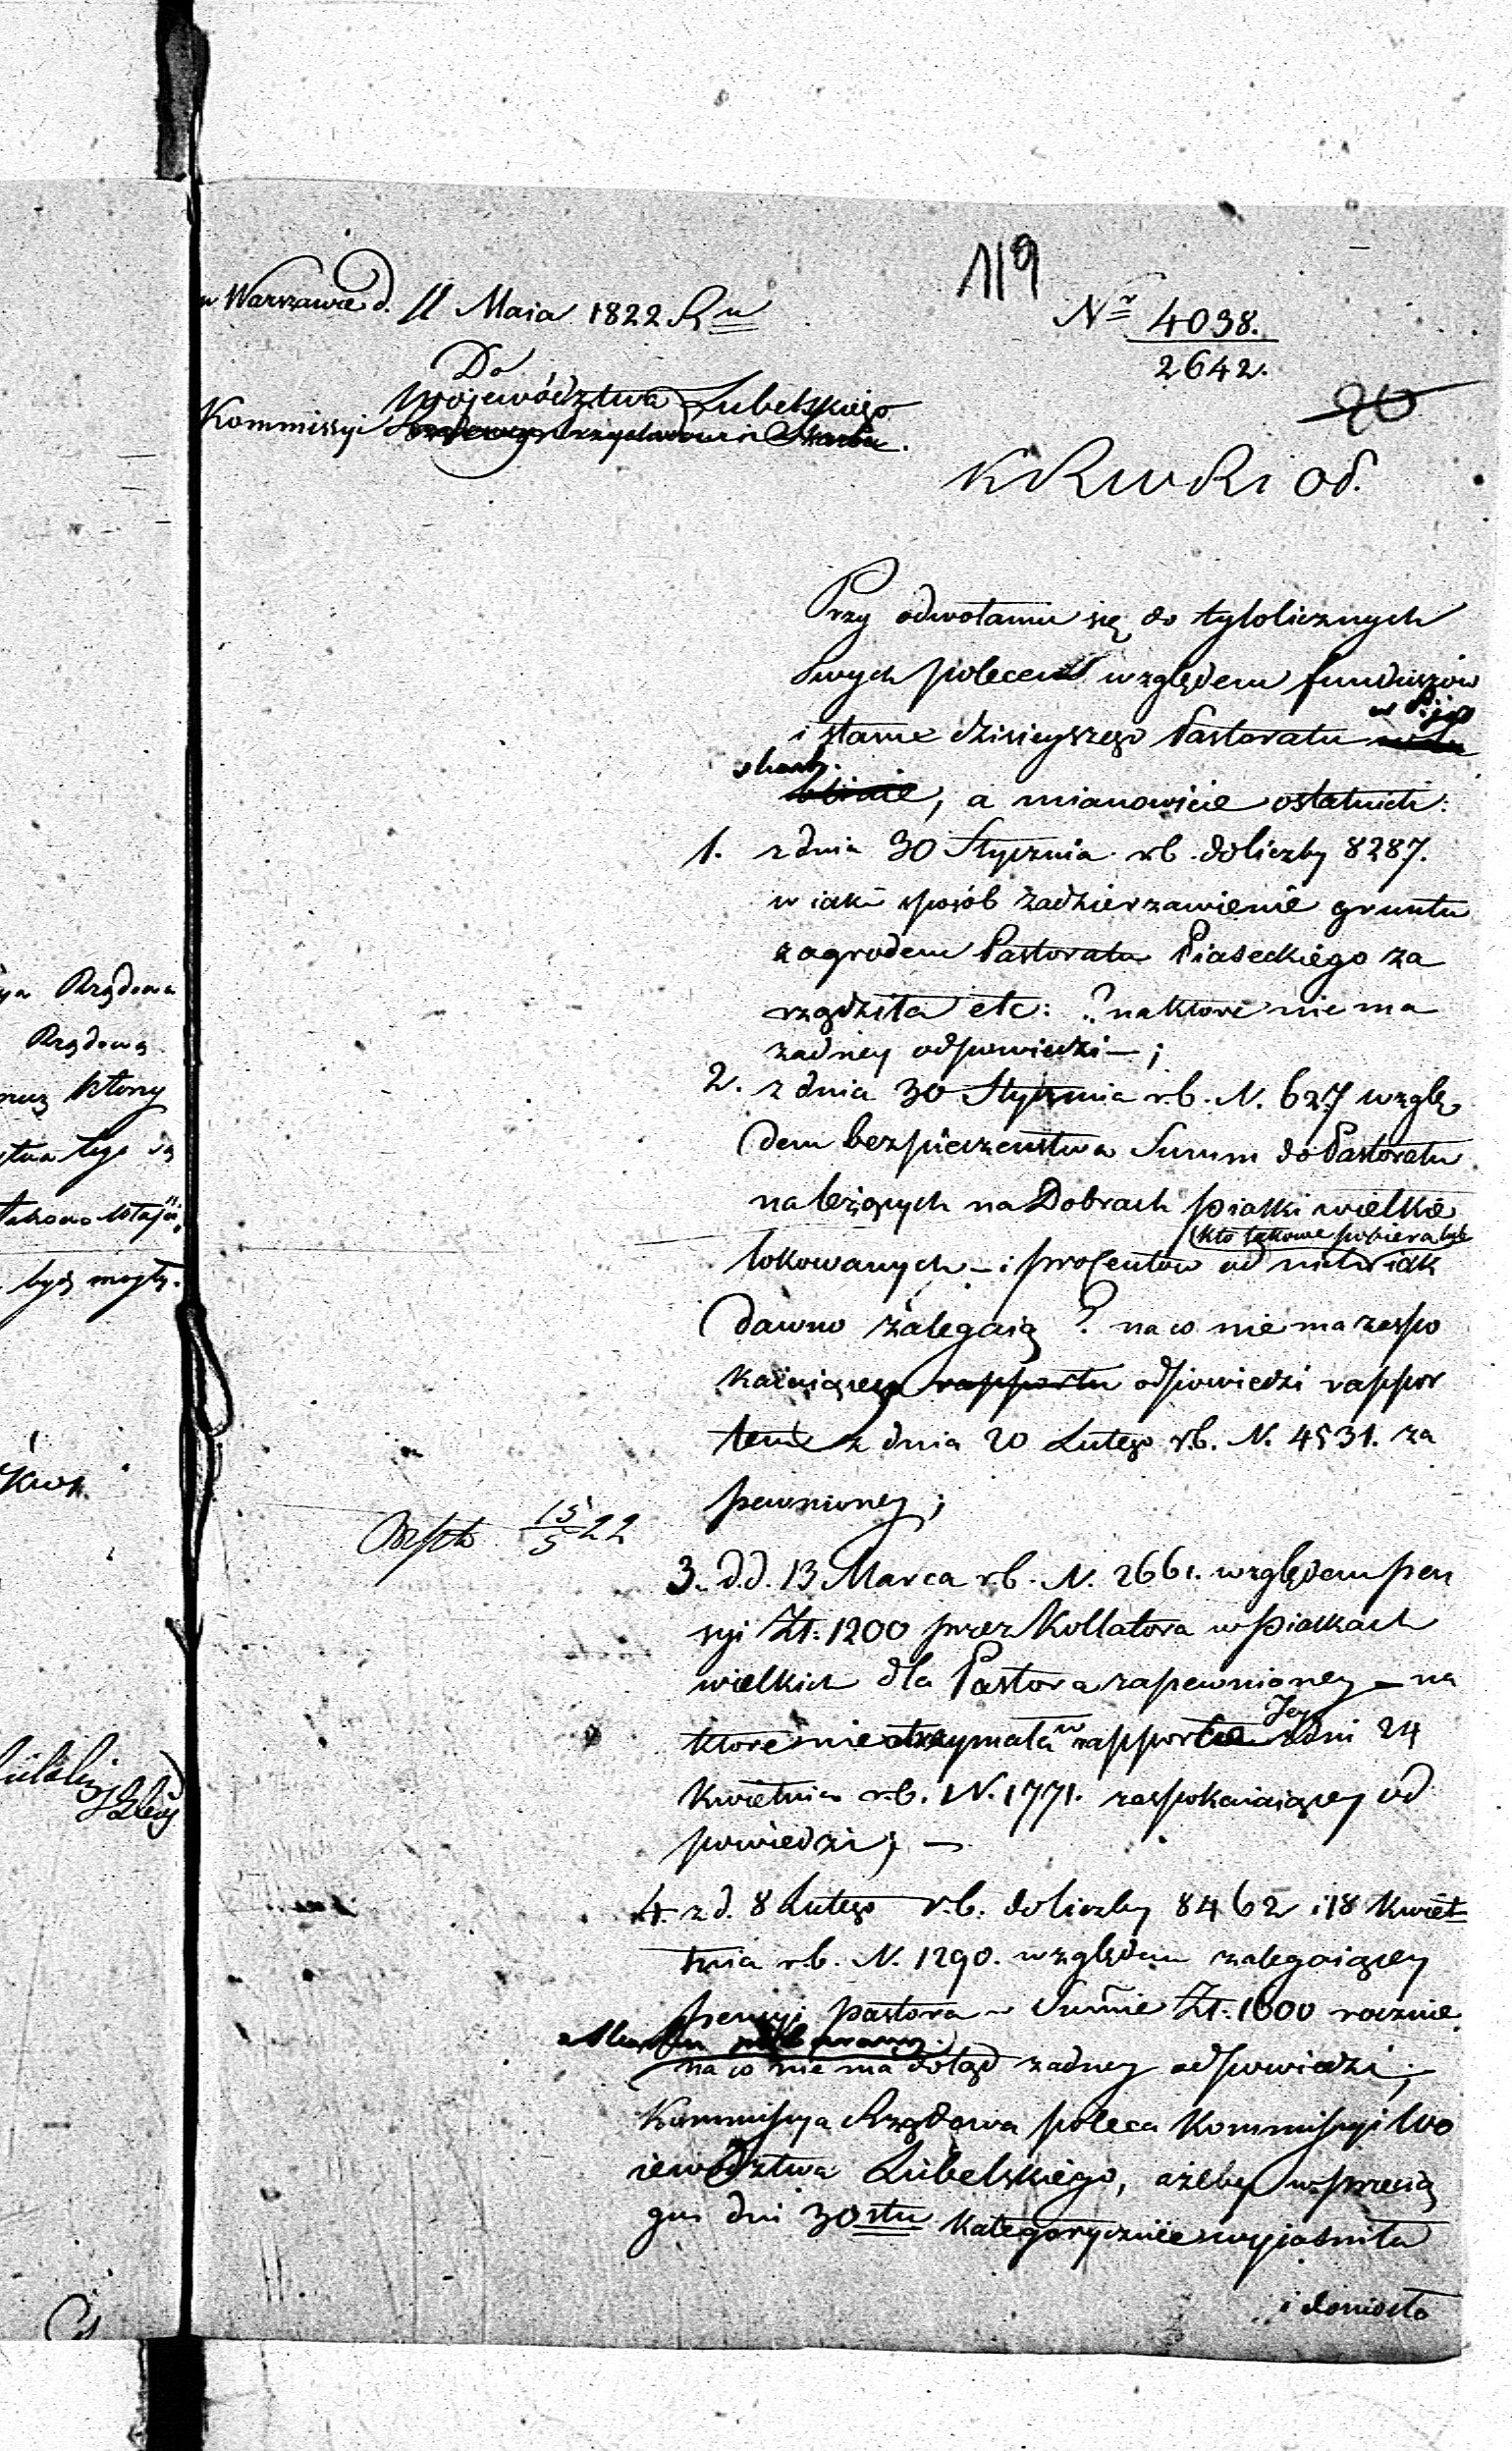 119
w Warszawie d. 11 Maia 1822 R u
Nr 4038.
2642.
Do
Województwa Lubelskiego
Kommissyi
20
KRWRi Oś.
Przy odwołaniu się do tylolicznych
swych poleceń względem funduszów
i stanie dzisieyszego Pastoratu w Pia
skach.
, a mianowicie ostatnich:
1. z dnia 30 Stycznia r.b. do liczby 8287.
w iaki sposób zadzierzawienie gruntu
z ogrodem Pastoratu Piaseckiego za
rządziła etc: ? na które niema
żadney odpowiedzi — ;
2. z dnia 30 Stycznia r.b. N. 627 wzglę
dem bezpieczenstwa Summ do Pastoratu
należących na Dobrach Piaski wielkie
(kto takowe pobierał lub
lokowanych — i procentów od nich iak
dawno zalegaią ? na co niema zaspo
kaiaiącey rapportu odpowiedzi rappor
tem z dnia 20 Lutego r.b. N. 4531. za
pewnioney ;
Exped 15/5 22
3. d.d. 13 Marca r.b. N. 2661. względem pen
syi Zł: 1200 przez Kollatora w Piaskach
wielkich dla Pastora zapewnioney — na
Jey
które nie otrzymała w rapporcie z dni 24
Kwietnia r.b. N. 1771. zaspokaiaiącey od
powiedzi ; —
4. z d. 8 Lutego r.b. do liczby 8462 i 18 Kwiet
tnia r.b. N. 1290. względem zalegaiącey
pensyi pastora w Summie Zł: 1000 rocznie
z Skarbu
na co niema dotąd żadney odpowiedzi ; —
Kommissya Rządowa poleca Kommissyi Wo
iewództwa Lubelskiego, ażeby w przecią
gu dni 30stu kategorycznie wyiaśniła
i doniosła
ya Rządowa
Rządową
Który
stwa tego są
bydź mogły.